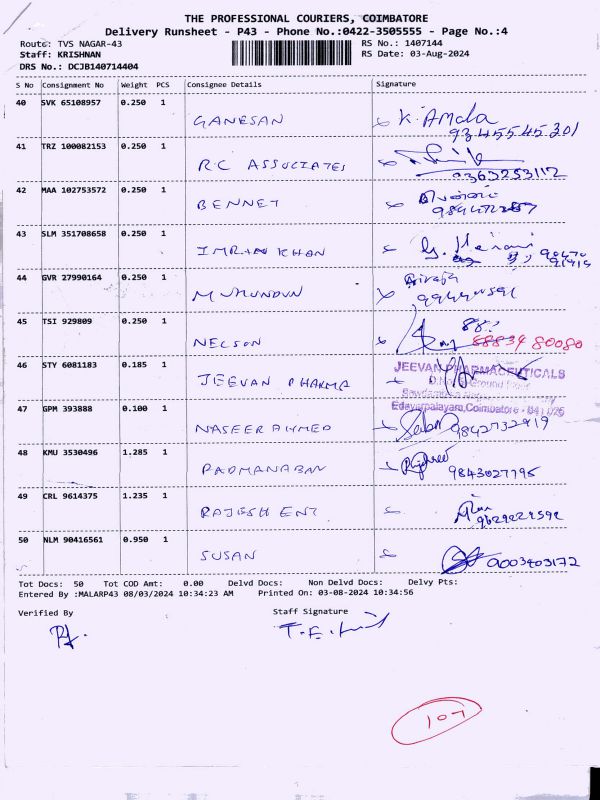 THE PROFESSIONAL COURIERS, COIMBATORE
Delivery Runsheet - P43 - Phone No.:0422-3505555 - Page No.:4
Route: TVS NAGAR-43 RS No.: 1407144
Staff: KRISHNAN RS Date: 03-Aug-2024
DRS No.: DCJB140714404
S No Consignment No Weight PCS Consignee Details Signature
40 SVK 65108957 0.250 1
GANESAN K. Amala
93455 45 201
41 TRZ 100082153 0.250 1
RC ASSOCIATES
9363253112
42 MAA 102753572 0.250 1
BENNET
43 SLM 351708658 0.250 1
IMRAN KHAN
44 GVR 27990164 0.250 1
MUKUNDUN
45 TSI 929809 0.250 1
NELSON 88834 80080
46 STY 6081183 0.185 1
JEEVAN PHARMA JEEVAN PHARMACEUTICALS
Edayarpalayam, Coimbatore - 641 025
47 GPM 393888 0.100 1
NASEER AHMED 9842732419
48 KMU 3530496 1.285 1
PADMANABAN 9843027795
49 CRL 9614375 1.235 1
RAJESH ENT
50 NLM 90416561 0.950 1
SUSAN 9003403172
Tot Docs: 50 Tot COD Amt: 0.00 Delvd Docs: Non Delvd Docs: Delvy Pts:
Entered By :MALARP43 08/03/2024 10:34:23 AM Printed On: 03-08-2024 10:34:56
Verified By Staff Signature
107